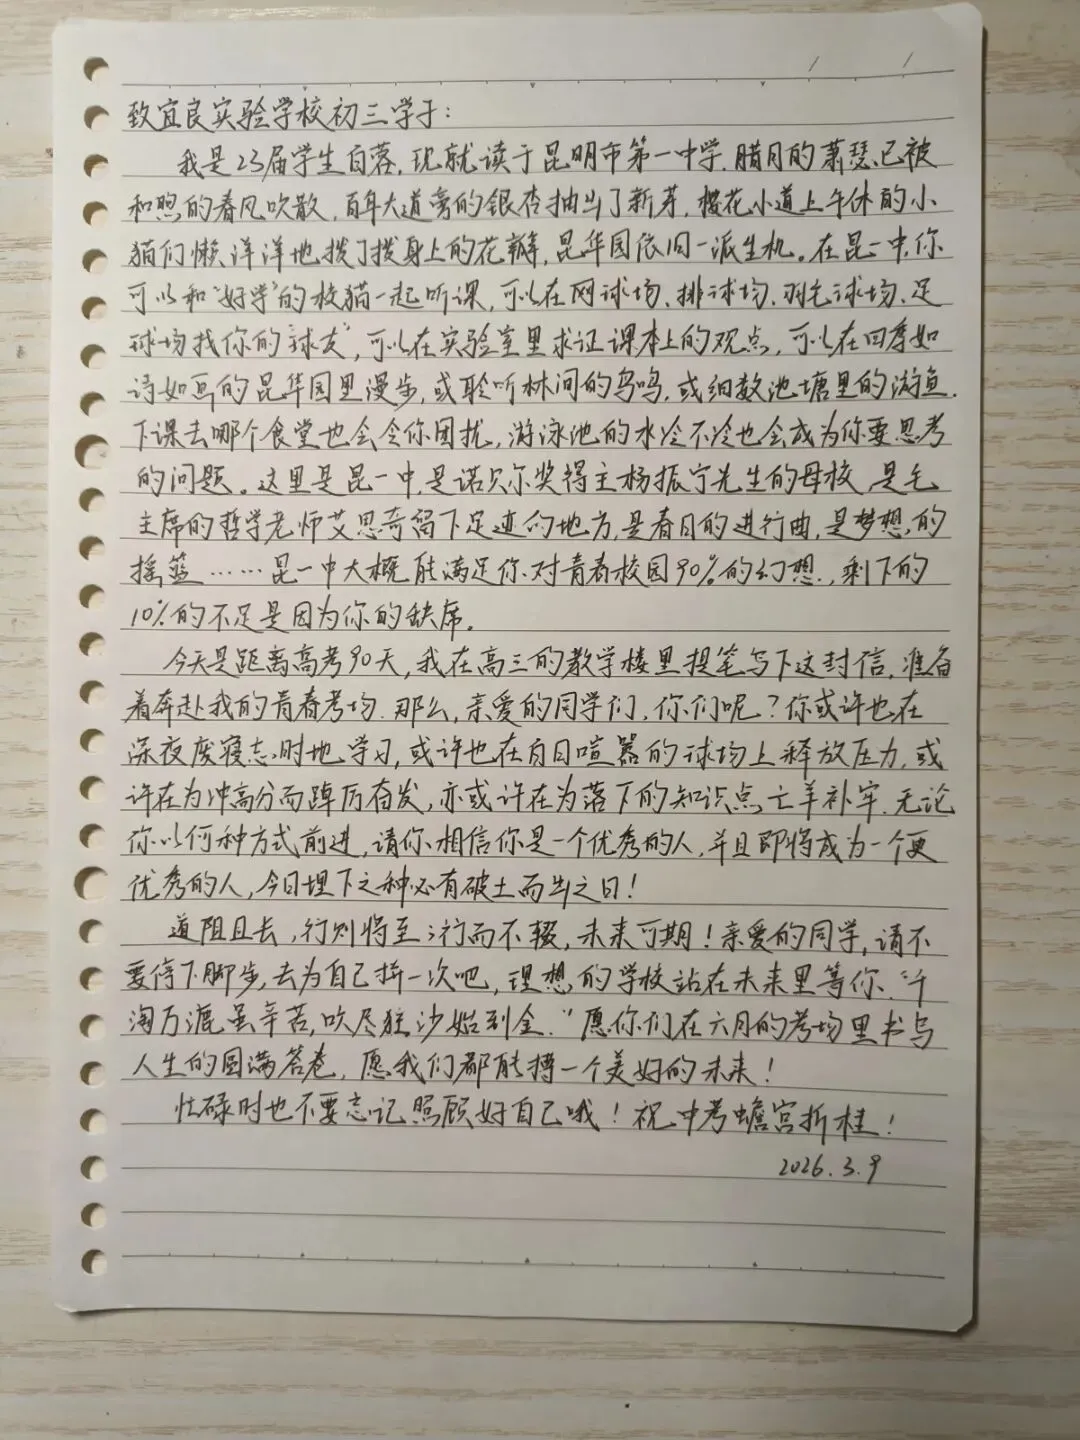 致宜良实验学校初三学子：
我是23届学生白蓉，现就读于昆明市第一中学，腊月的萧瑟已被
和煦的春风吹散，百年大道旁的银杏抽出了新芽，樱花小道上午休的小
猫们懒洋洋地拨了拨身上的花瓣，昆华园依旧一派生机。在昆一中，你
可以和“好学”的校猫一起听课，可以在网球场、排球场、羽毛球场、足
球场找你的“球友”，可以在实验室里求证课本上的观点，可以在四季如
诗如画的昆华园里漫步，或聆听林间的鸟鸣，或细数池塘里的游鱼，
下课去哪个食堂也会令你困扰，游泳池的水冷不冷也会成为你要思考
的问题。这里是昆一中，是诺贝尔奖得主杨振宁先生的母校，是毛
主席的哲学老师艾思奇留下足迹的地方，是春日的进行曲，是梦想的
摇篮……昆一中大概能满足你对青春校园90%的幻想，剩下的
10%的不足是因为你的缺席。
今天是距离高考90天，我在高三的教学楼里提笔写下这封信，准备
着奔赴我的青春考场。那么，亲爱的同学们，你们呢？你或许也在
深夜废寝忘时地学习，或许也在白日喧嚣的球场上释放压力，或
许在为冲高分而踔厉奋发，亦或许在为落下的知识点亡羊补牢，无论
你以何种方式前进，请你相信你是一个优秀的人，并且即将成为一个更
优秀的人，今日埋下之种必有破土而出之日！
道阻且长，行则将至；行而不辍，未来可期！亲爱的同学，请不
要停下脚步，去为自己拼一次吧，理想的学校站在未来里等你，“千
淘万漉虽辛苦，吹尽狂沙始到金。”愿你们在六月的考场里书写
人生的圆满答卷，愿我们都能搏一个美好的未来！
忙碌时也不要忘记照顾好自己哦！祝中考蟾宫折桂！
2026.3.9